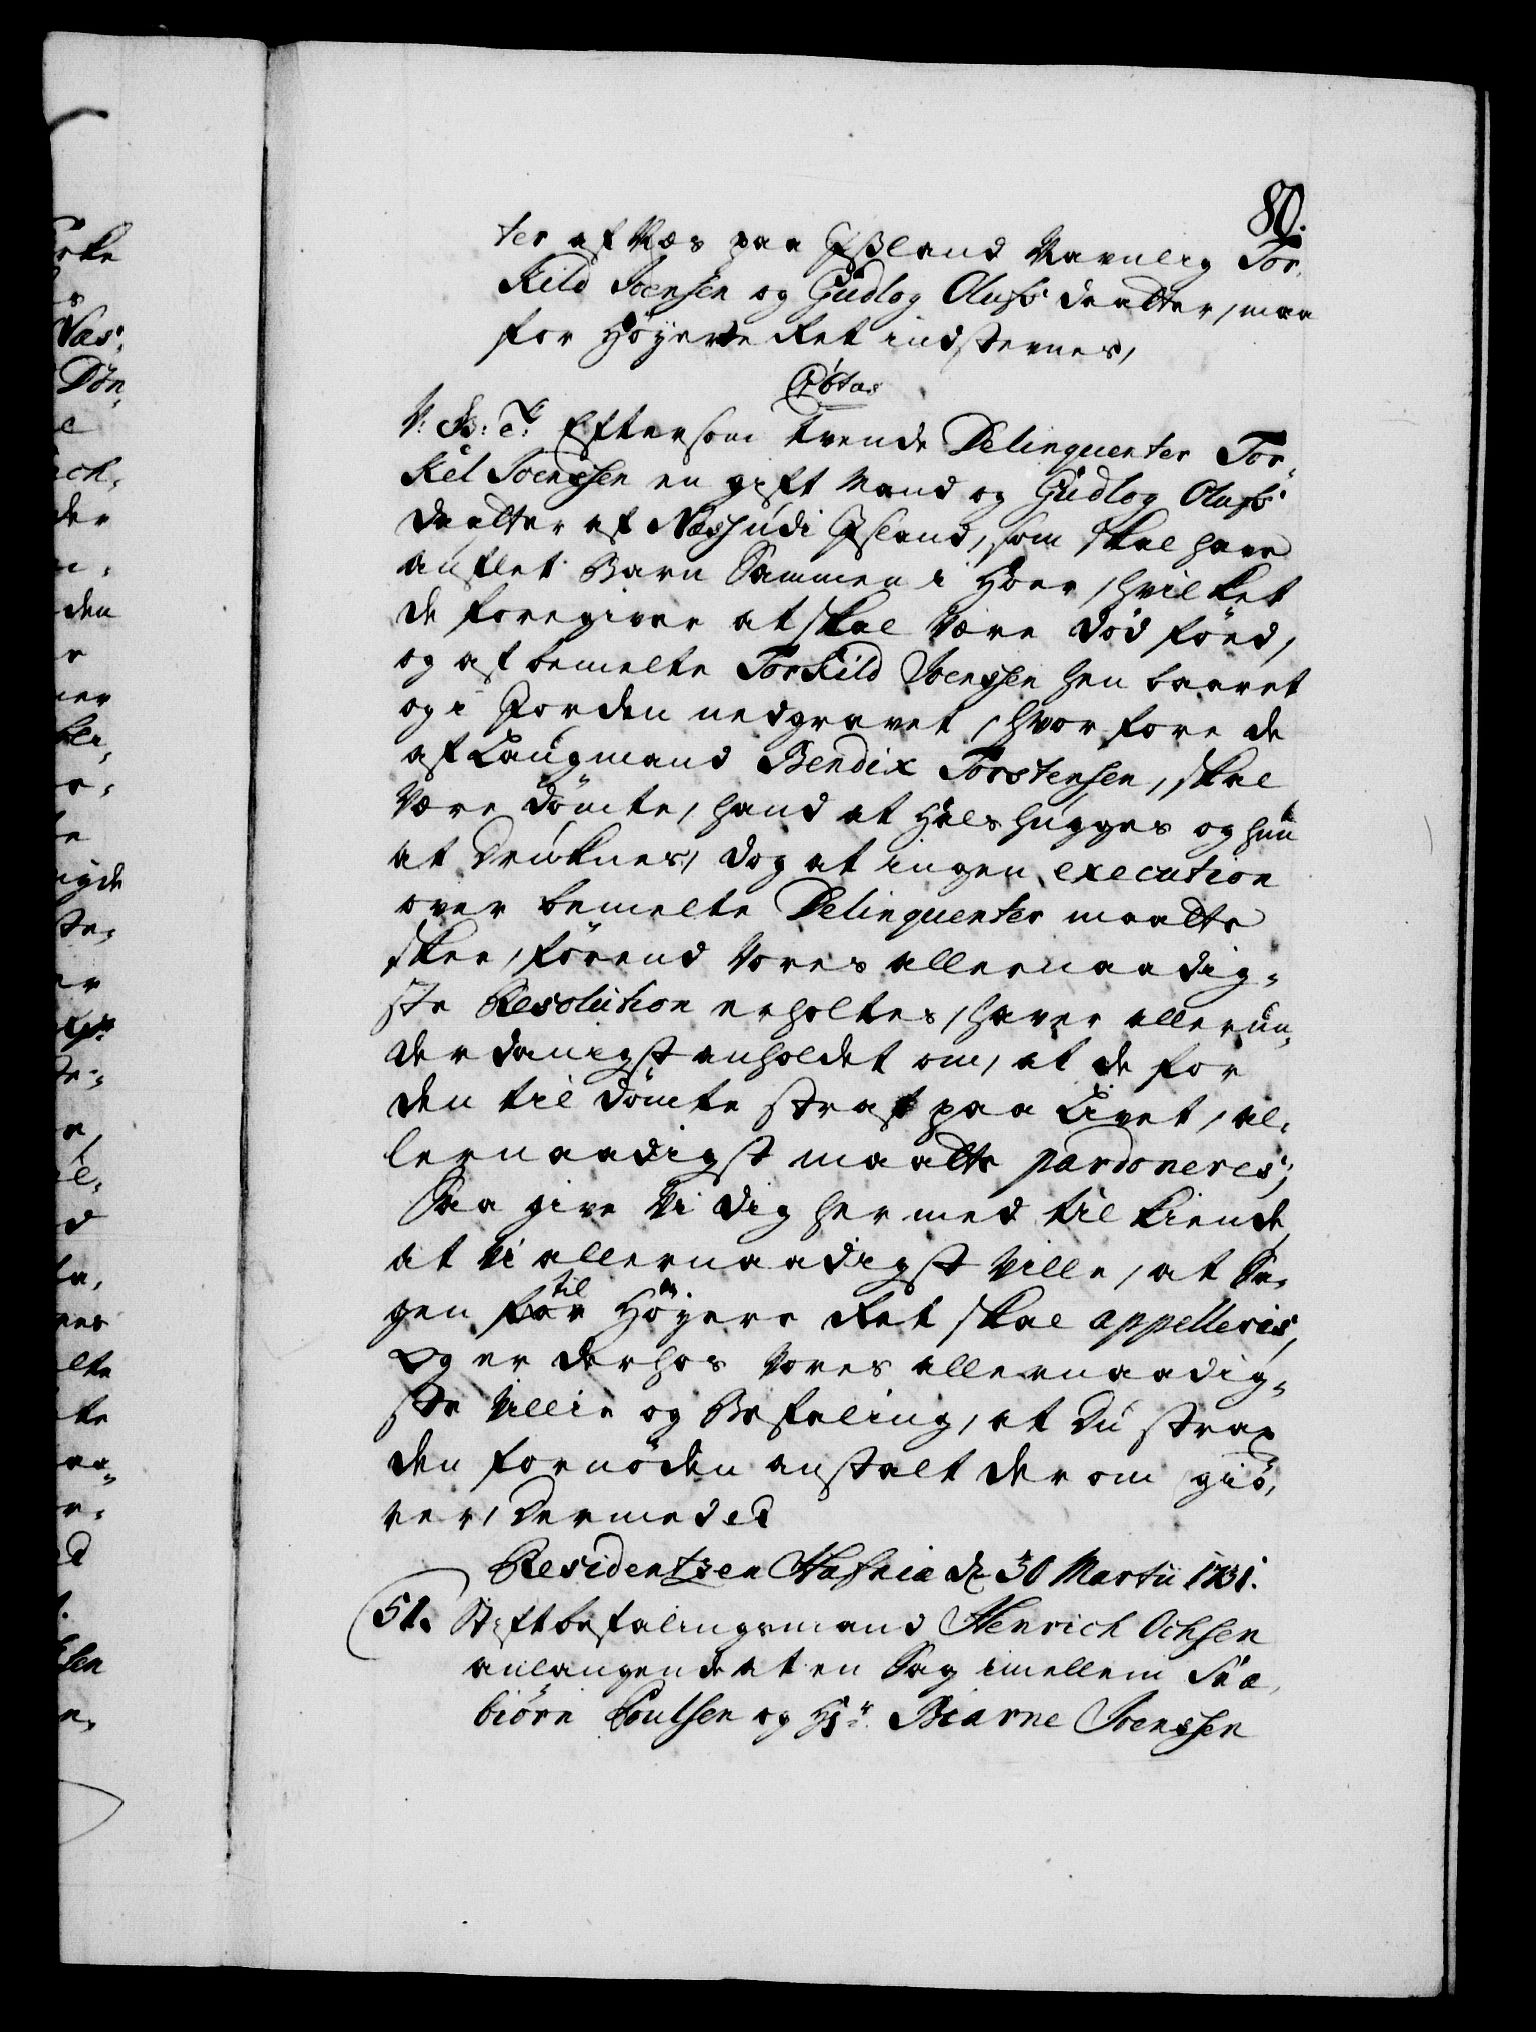 80.
ter af Næs paa Ißland Navnlig Tor-
kild Joensen og Gudlog Olufs daatter, maa
for Höyeste Ret indstevnes,
V: S: c: Eftersom tvende Delinquenter Tor-
kel Joenssen en gift Mand og Gudlog Olufs
daatter af Næss udi Island, som skal have
auflet Barn Sammen i Hoer, hvilket
de foregiver at skal være död föed,
og af bemelte Torkild Joenssen hen baaret
og i Jorden nedgravet, hvor fore de
af Laugmand Bendix Torstensen, skal
være dömte, hand at Halshugges og hun
at Druknes, dog at ingen execution
over bemelte Delinquenter maatte
skee, förend Vores allernaadig-
ste Resolution erholtes, haver allerun-
derdanigst anholdet om, at de for
den til dömte straf paa Livet, al-
lernaadigst maatte pardoneres;
Saa give Vi dig hermed til kiende,
at Vi allernaadigst ville, at Sa-
gen for til Höyere Ret skal appelleris,
Og er derhos Vores allernaadig-
ste Villie og Befaling, at Du strax
den fornöden anstalt derom giö-
rer, Dermed etc
Residentzen Hafniæ d. 30 Martii 1731.
51. Stiftbefalingsmand Henrich Ochsen
anlangende at en Sag imellem Snæ-
biörn Poulsen og Hr. Biarne Joenssen